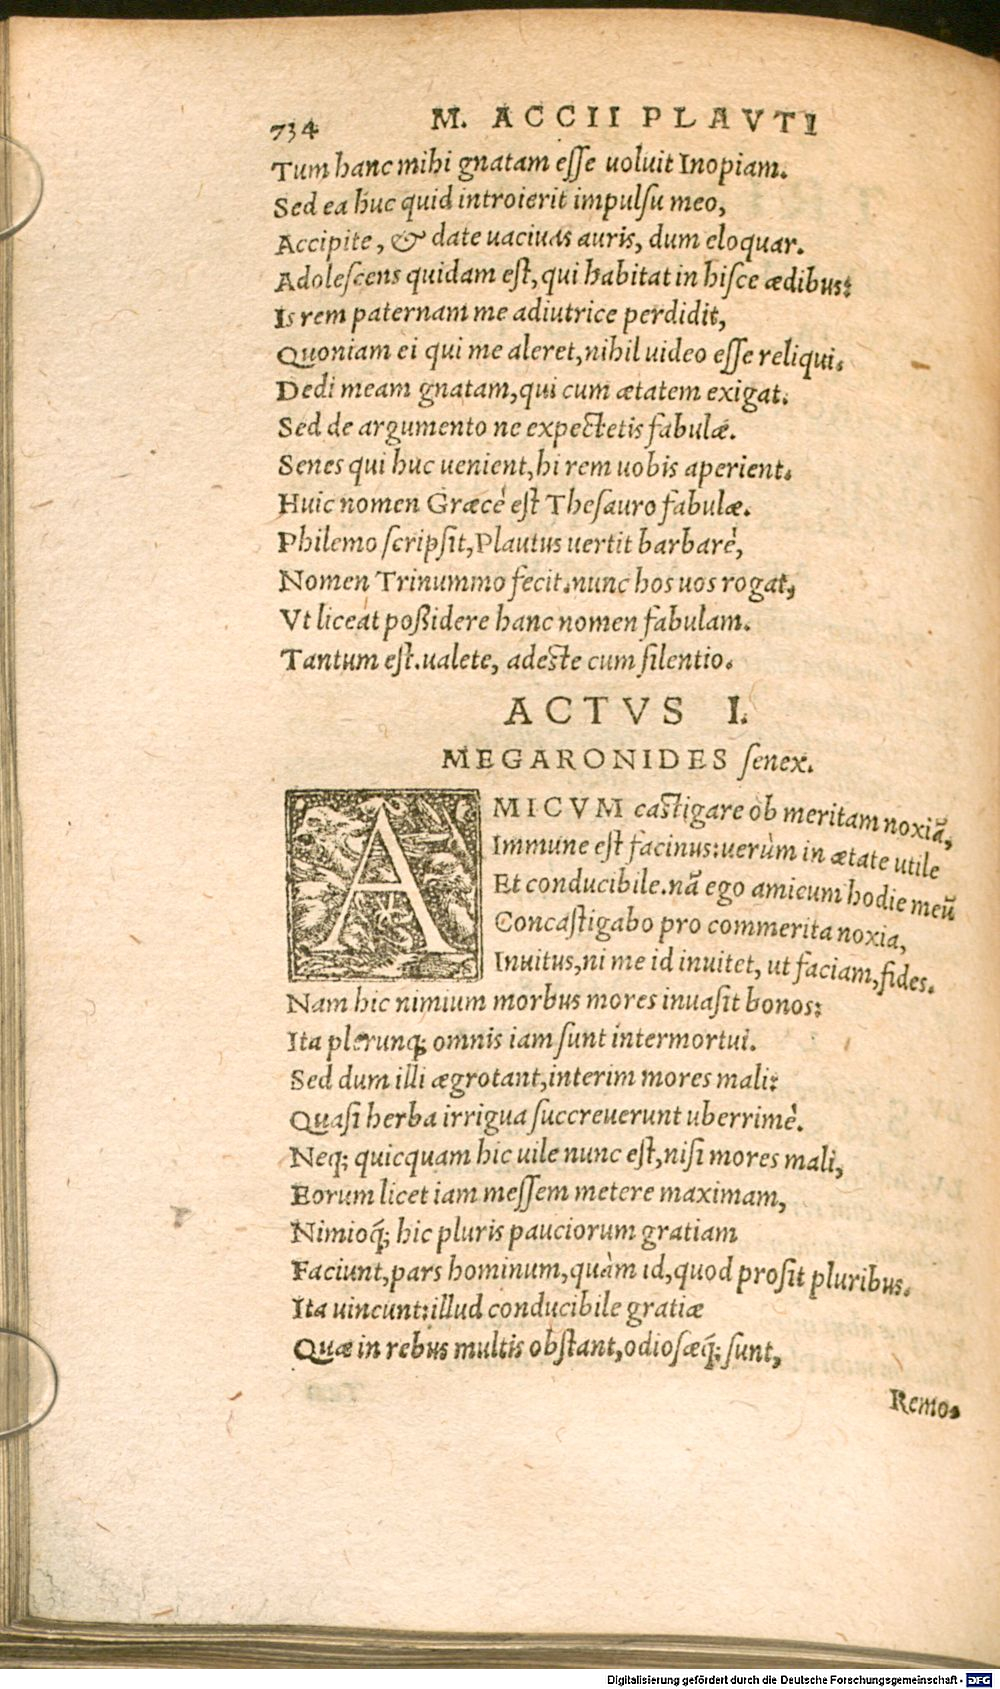 734 M. ACCII PLAVTI
Tum hanc mihi gnatam esse uoluit Inopiam.
Sed ea huc quid introierit impulsu meo,
Accipite, & date uaciuas auris, dum eloquar.
Adolescens quidam est, qui habitat in hisce ædibus:
Is rem paternam me adiutrice perdidit,
Quoniam ei qui me aleret, nihil uideo esse reliqui.
Dedi meam gnatam, qui cum ætatem exigat.
Sed de argumento ne expectetis fabulæ.
Senes qui huc uenient, hi rem uobis aperient.
Huic nomen Græcè est Thesauro fabulæ.
Philemo scripsit, Plautus uertit barbarè,
Nomen Trinummo fecit. nunc hos uos rogat,
Vt liceat poßidere hanc nomen fabulam.
Tantum est. ualete, adeste cum silentio.
ACTVS I.
MEGARONIDES senex.
AMICVM castigare ob meritam noxiã,
Immune est facinus: uerùm in ætate utile
Et conducibile. nã ego amicum hodie meũ
Concastigabo pro commerita noxia,
Inuitus, ni me id inuitet, ut faciam, fides.
Nam hic nimium morbus mores inuasit bonos:
Ita plerunq; omnis iam sunt intermortui.
Sed dum illi ægrotant, interim mores mali:
Quasi herba irrigua succreuerunt uberrimè.
Neq; quicquam hic uile nunc est, nisi mores mali,
Eorum licet iam messem metere maximam,
Nimioq́; hic pluris pauciorum gratiam
Faciunt, pars hominum, quàm id, quod prosit pluribus.
Ita uincunt: illud conducibile gratiæ
Quæ in rebus multis obstant, odiosæq́; sunt,
Remo.
Digitalisierung gefördert durch die Deutsche Forschungsgemeinschaft - DFG